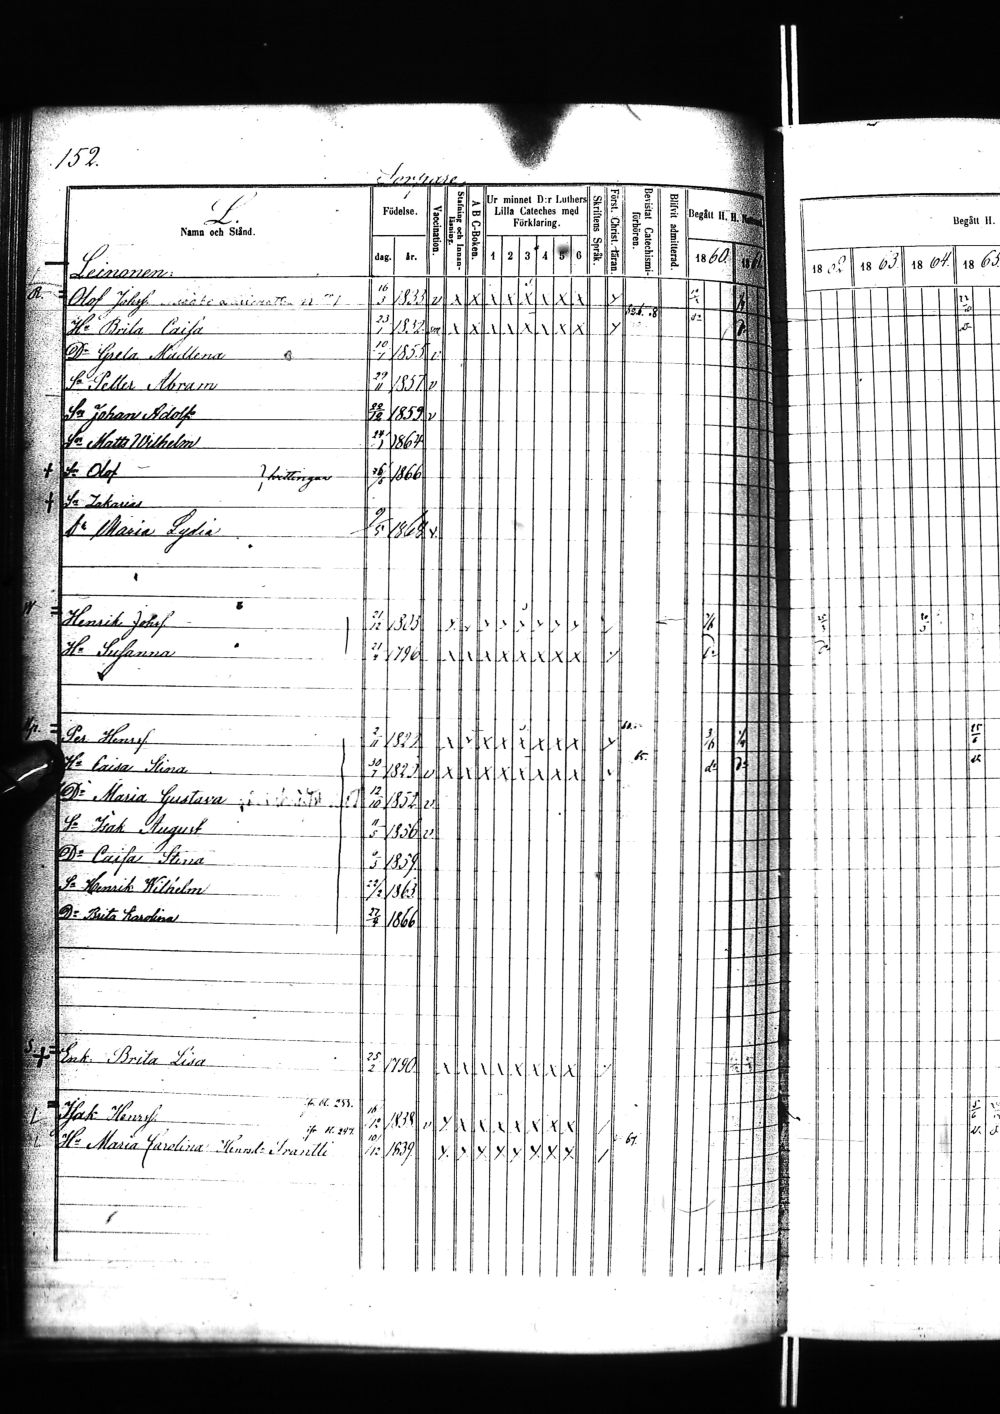 152.
L.
Namn och Stånd.
Födelse.
dag. år.
Vaccination.
Stafning och Innanläsning.
A B C-Boken.
Ur minnet D:r Luthers Lilla Cateches med Förklaring.
1 2 3 4 5 6
Skriftens Språk.
Först. Christ.-läran.
Bevistat Catechismiförhören.
Blifvit admitterad.
Begått H. H.
1860.
Begått H.
1862 1863. 1864. 1865
Leinonen:
Olof Johsf 16/3 1833 v x x x x x x x x
Hu Brita Caisa 23/1 1832 x x x x x x x x
Dr Greta Madlena 10/7 1855 v
Sn Petter Abram 29/11 1857 v
Sn Johan Adolf 1859 v
Sn Matts Wilhelm 24/1 1864
+ Sn Olof } tvillingar 1866
+ Sn Zakarias
Dr Maria Lydia 9/5 1868 v.
Henrik Johsf 21/12 1823 x x x x x x x x
Hu Susanna 1796 x x x x x x x x
Per Henrsf 2/11 182 x x x x x x x x
Hu Caisa Stina 30/7 1823 v x x x x x x x x
Dr Maria Gustava 12/10 1852 v.
Sn Isak August 11/5 1856 v.
Dr Caisa Stina 1859
Sn Henrik Wilhelm 22/2 1863
Dr Brita Karolina 27/4 1866
+ Enk. Brita Lisa 25/2 1790 x x x x x x x x
Isak Henrsf 16/12 1838 v x x x x x x x x
Hu Maria Carolina Henrsdr 10/12 1839 x x x x x x x x 67.